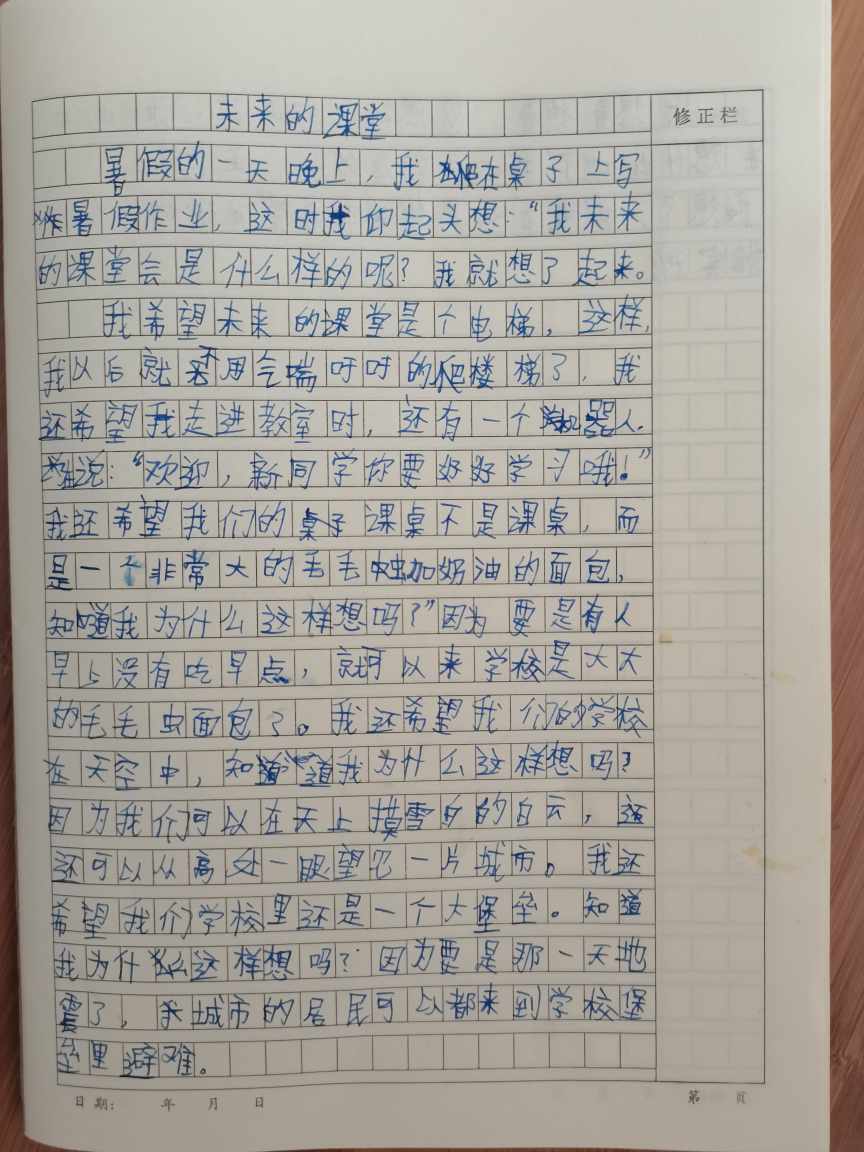 未来的课堂
修正栏
暑假的一天晚上，我爬在桌子上写
作暑假作业，这时我仰起头想：“我未来
的课堂会是什么样的呢？我就想了起来。
我希望未来的课堂是个电梯，这样，
我以后就不用气喘吁吁的爬楼梯了，我
还希望我走进教室时，还有一个机器人.
说：“欢迎，新同学你要好好学习哦！”
我还希望我们的桌子课桌不是课桌，而
是一个非常大的毛毛虫加奶油的面包，
知道我为什么这样想吗？”因为要是有人
早上没有吃早点，就可以来学校是大大
的毛毛虫面包了。我还希望我们的学校
在天空中，知道我为什么这样想吗？
因为我们可以在天上摸雪白的白云，还
还可以从高处一眼望见一片城市。我还
希望我们学校里还是一个大堡垒。知道
我为什么这样想吗？因为要是那一天地
震了，我城市的居民可以都来到学校堡
垒里避难。
日期： 年 月 日 第 页